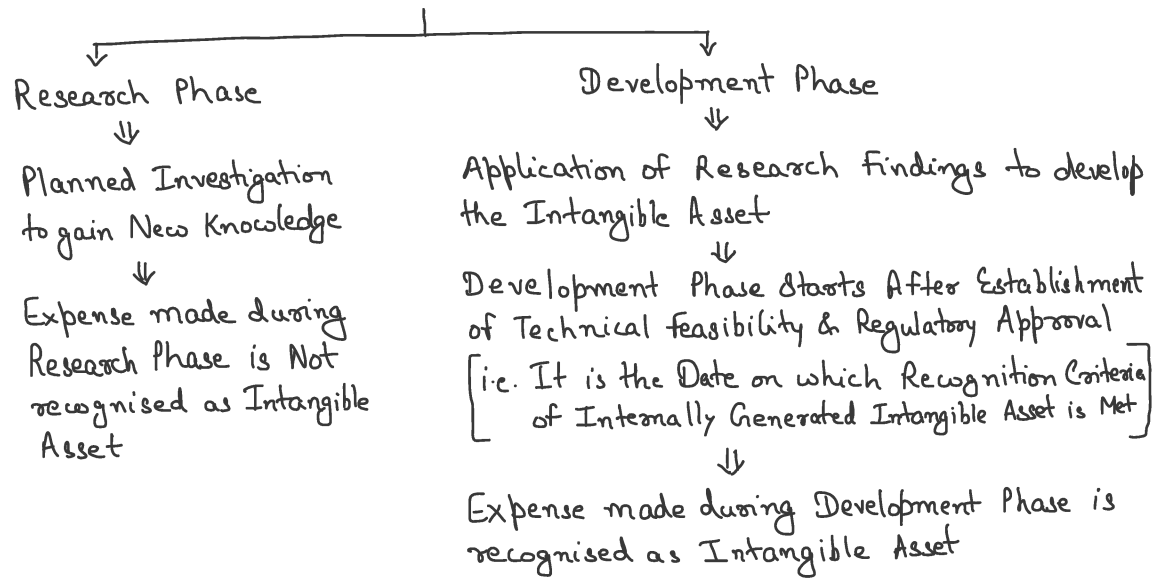 Research Phase
⇓
Planned Investigation
to gain New Knowledge
⇓
Expense made during
Research Phase is Not
recognised as Intangible
Asset
Development Phase
⇓
Application of Research Findings to develop
the Intangible Asset
⇓
Development Phase Starts After Establishment
of Technical feasibility & Regulatory Approval
[i.e. It is the Date on which Recognition Criteria
of Internally Generated Intangible Asset is Met]
⇓
Expense made during Development Phase is
recognised as Intangible Asset